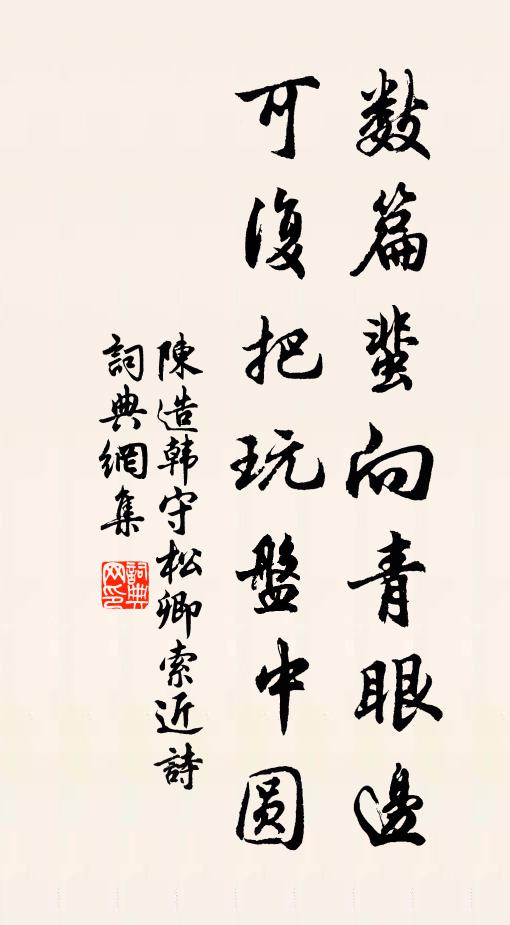 数篇蜚向青眼邊
可復把玩盤中圆
陳造韩守松卿索近詩
詞典網集
詞典网印